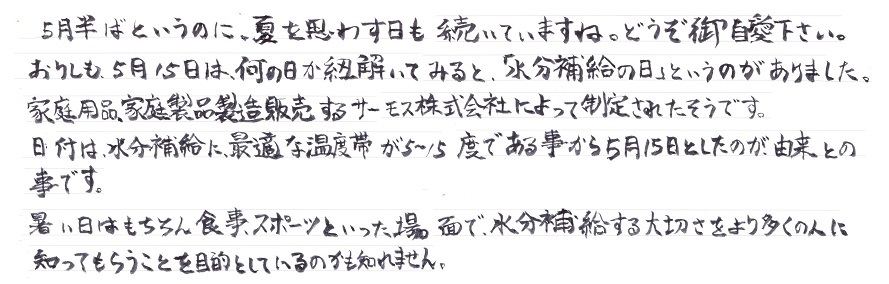 5月半ばというのに、夏を思わす日も続いていますね。どうぞ御自愛下さい。
おりしも、5月15日は、何の日か紐解いてみると、「水分補給の日」というのがありました。
家庭用品、家庭製品製造販売するサーモス株式会社によって制定されたそうです。
日付は、水分補給に、最適な温度帯が5~15度である事から5月15日としたのが、由来との
事です。
暑い日はもちろん食事、スポーツといった場面で、水分補給する大切さをより多くの人に
知ってもらうことを目的としているのかも知れません。